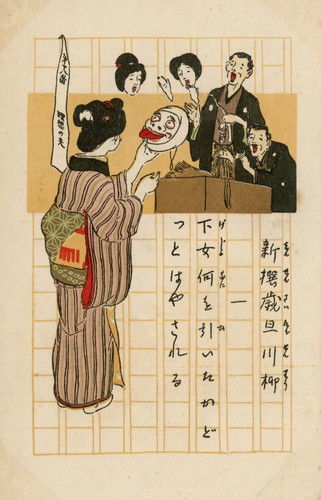 新撰歳旦川柳
一
下女何を引いたかど
つとはやされる
十八番
理想の夫